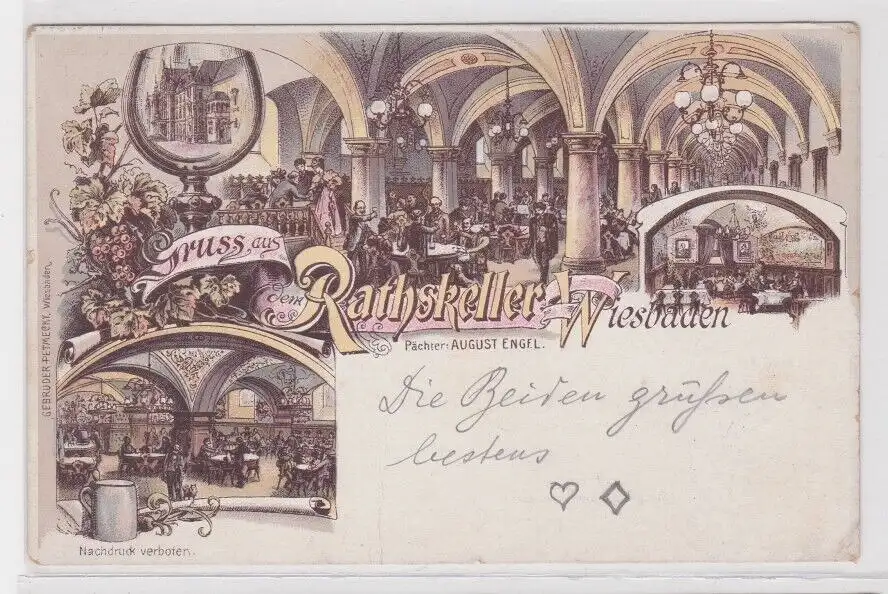 Gruss aus
dem
Rathskeller Wiesbaden
Pächter: AUGUST ENGEL.
GEBRÜDER PETMECKY, Wiesbaden.
Die Beiden grüssen
bestens
Nachdruck verboten.